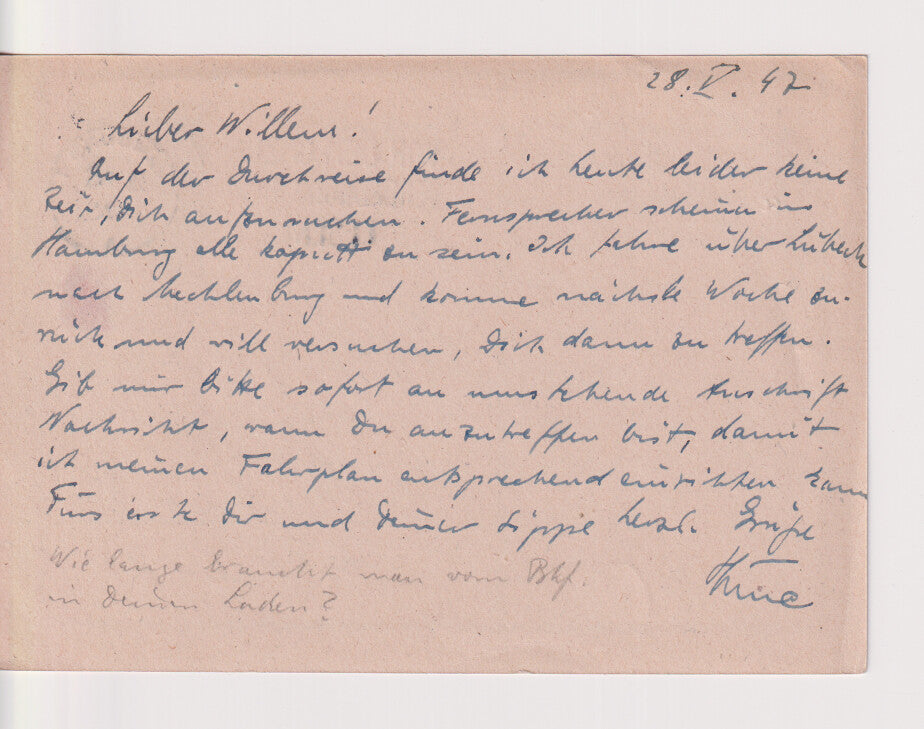 28. V. 47
Lieber Willem!
Auf der Durchreise finde ich heute leider keine
Zeit, Dich aufzusuchen. Fernsprecher scheinen in
Hamburg alle kaputt zu sein. Ich fahre über Lübeck
nach Mecklenburg und komme nächste Woche zu-
rück und will versuchen, Dich dann zu treffen.
Gib mir bitte sofort an umstehende Anschrift
Nachricht, wann Du anzutreffen bist, damit
ich meinen Fahrplan entsprechend einrichten kann
Fürs erste Dir und Deiner Sippe herzl. Grüße
Wie lange braucht man vom Bhf.
in Deinen Laden?